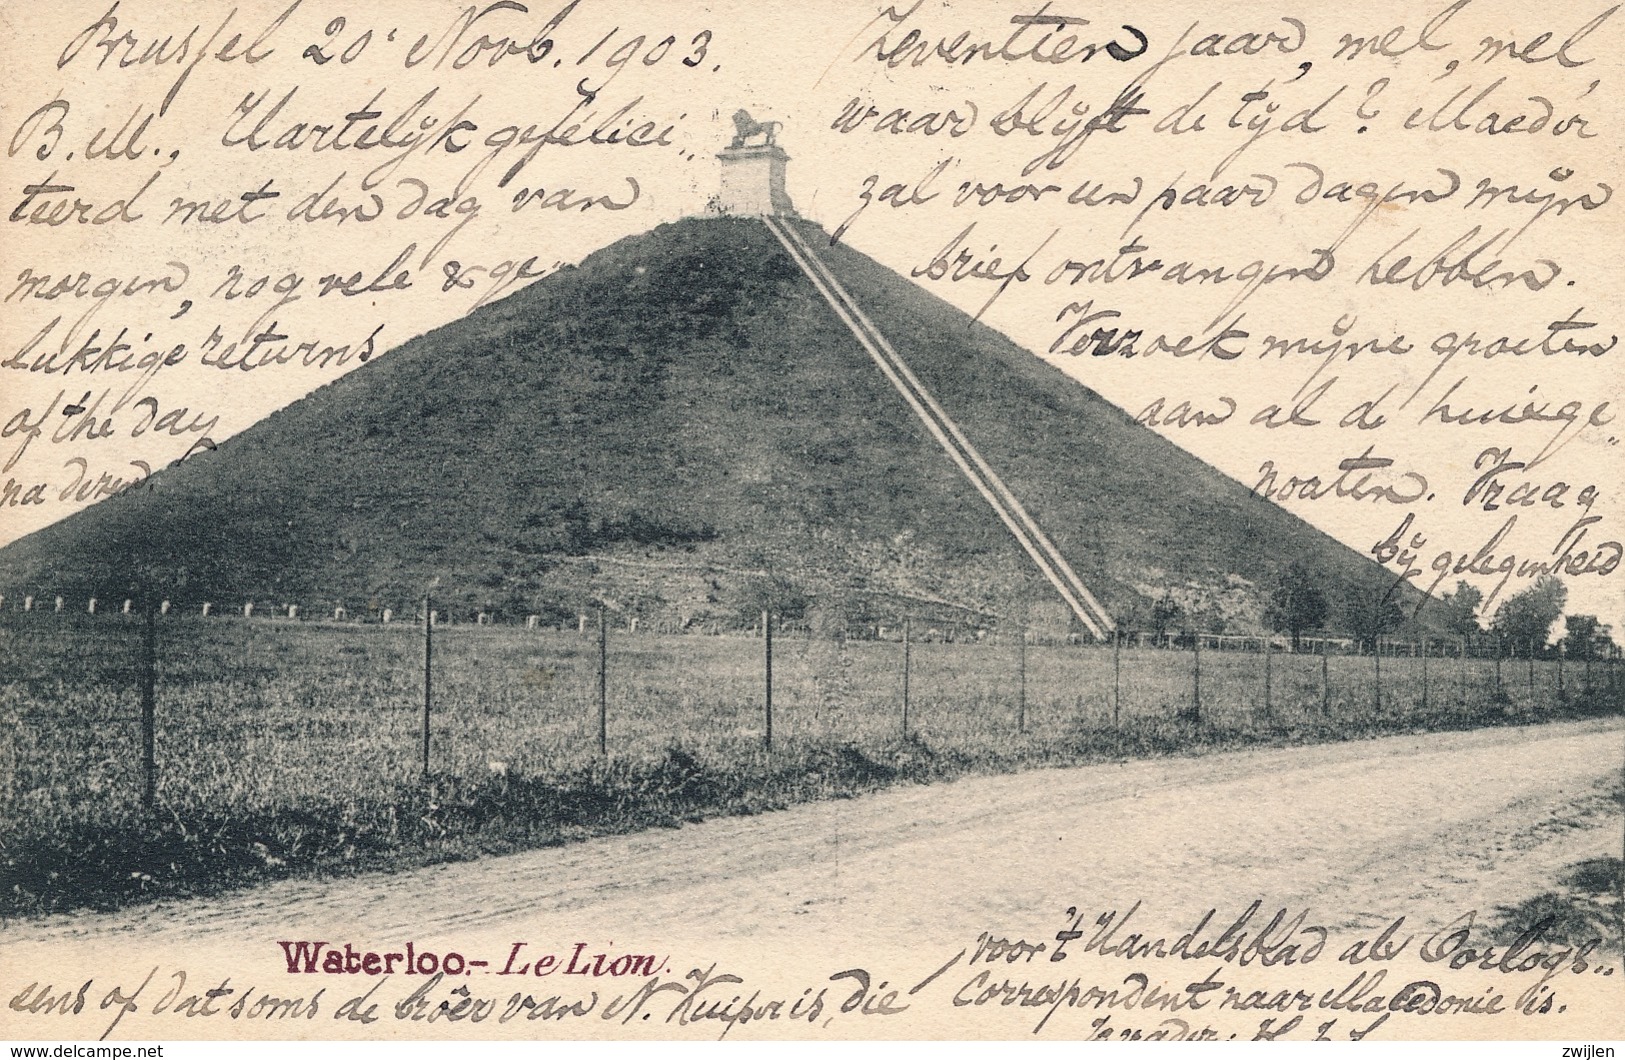 Brussel 20' Novb. 1903.
B.M., Hartelijk gefelici„
teerd met den dag van
morgen, nog vele & ge„
lukkige returns
of the day
na dezen.
Zeventien jaar, mel, mel,
waar blijft de tijd? Moeder
zal voor een paar dagen mijn
brief ontvangen hebben.
Verzoek mijne groeten
aan al de huisge„
noaten. Vraag
bij gelegenheid
Waterloo.- Le Lion.
eens of dat soms de broêr van N. Kuiper is, die
voor 't Handelsblad als Oorlogs„
Correspondent naar Macedonie is.
vader: H.
delcampe.net
zwijlen